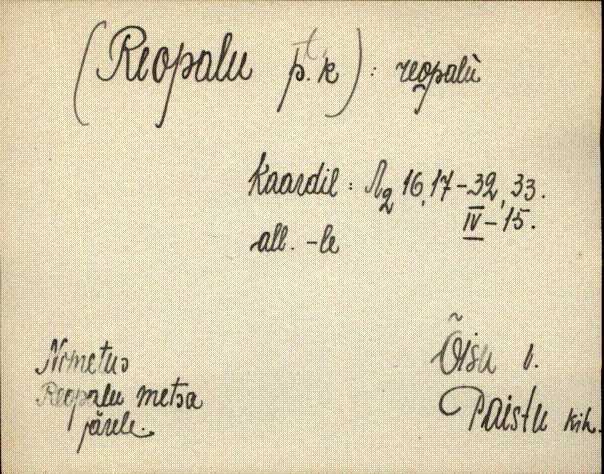 (Reopalu p.k) : reopalù
Kaardil : Λ2 16,17-32, 33.
IV-15.
all. -le
Nimetus
Reopalu metsa
järele.
Õisu v.
Paistu kih.